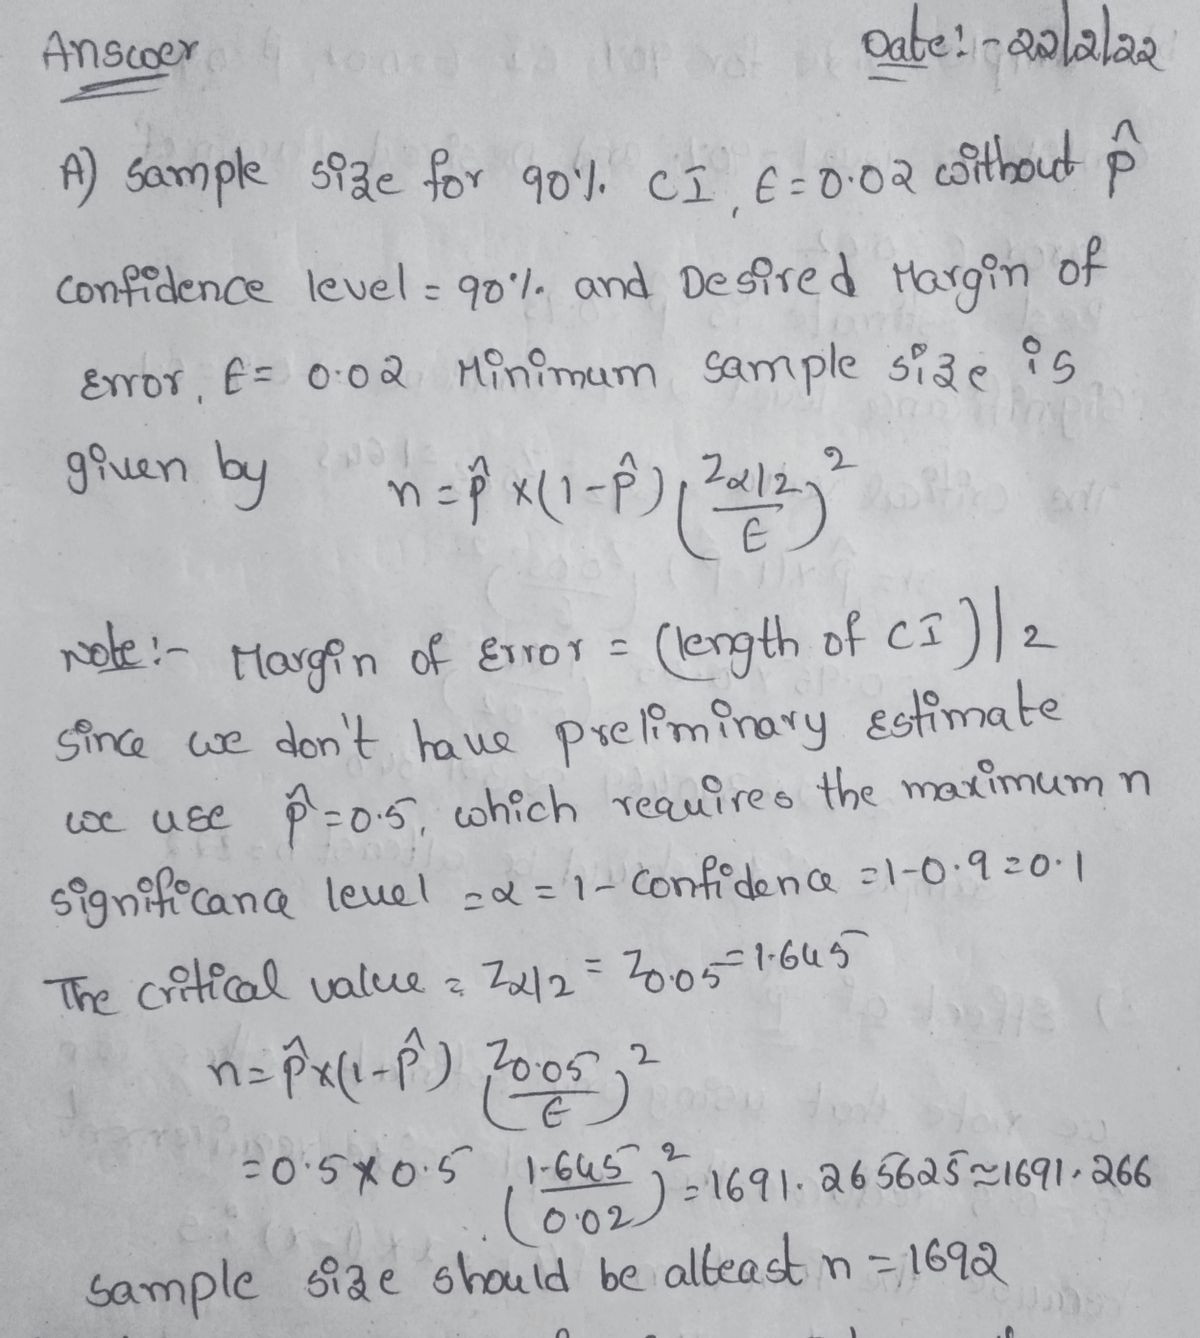 Answer Date:- 22/2/22
A) Sample size for 90% CI, E=0.02 without p̂
confidence level = 90% and Desired Margin of
Error, E= 0.02 Minimum sample size is
given by n = p̂ x(1-p̂) (Zα/2/E)²
Note:- Margin of Error = (length of CI)/2
since we don't have preliminary Estimate
we use p̂=0.5, which requires the maximum n
significance level =α = 1- Confidence =1-0.9=0.1
The critical value = Zα/2 = Z0.05=1.645
n=p̂x(1-p̂) (Z0.05/E)²
=0.5x0.5 (1.645/0.02)²=1691.265625≈1691.266
sample size should be alteast n = 1692